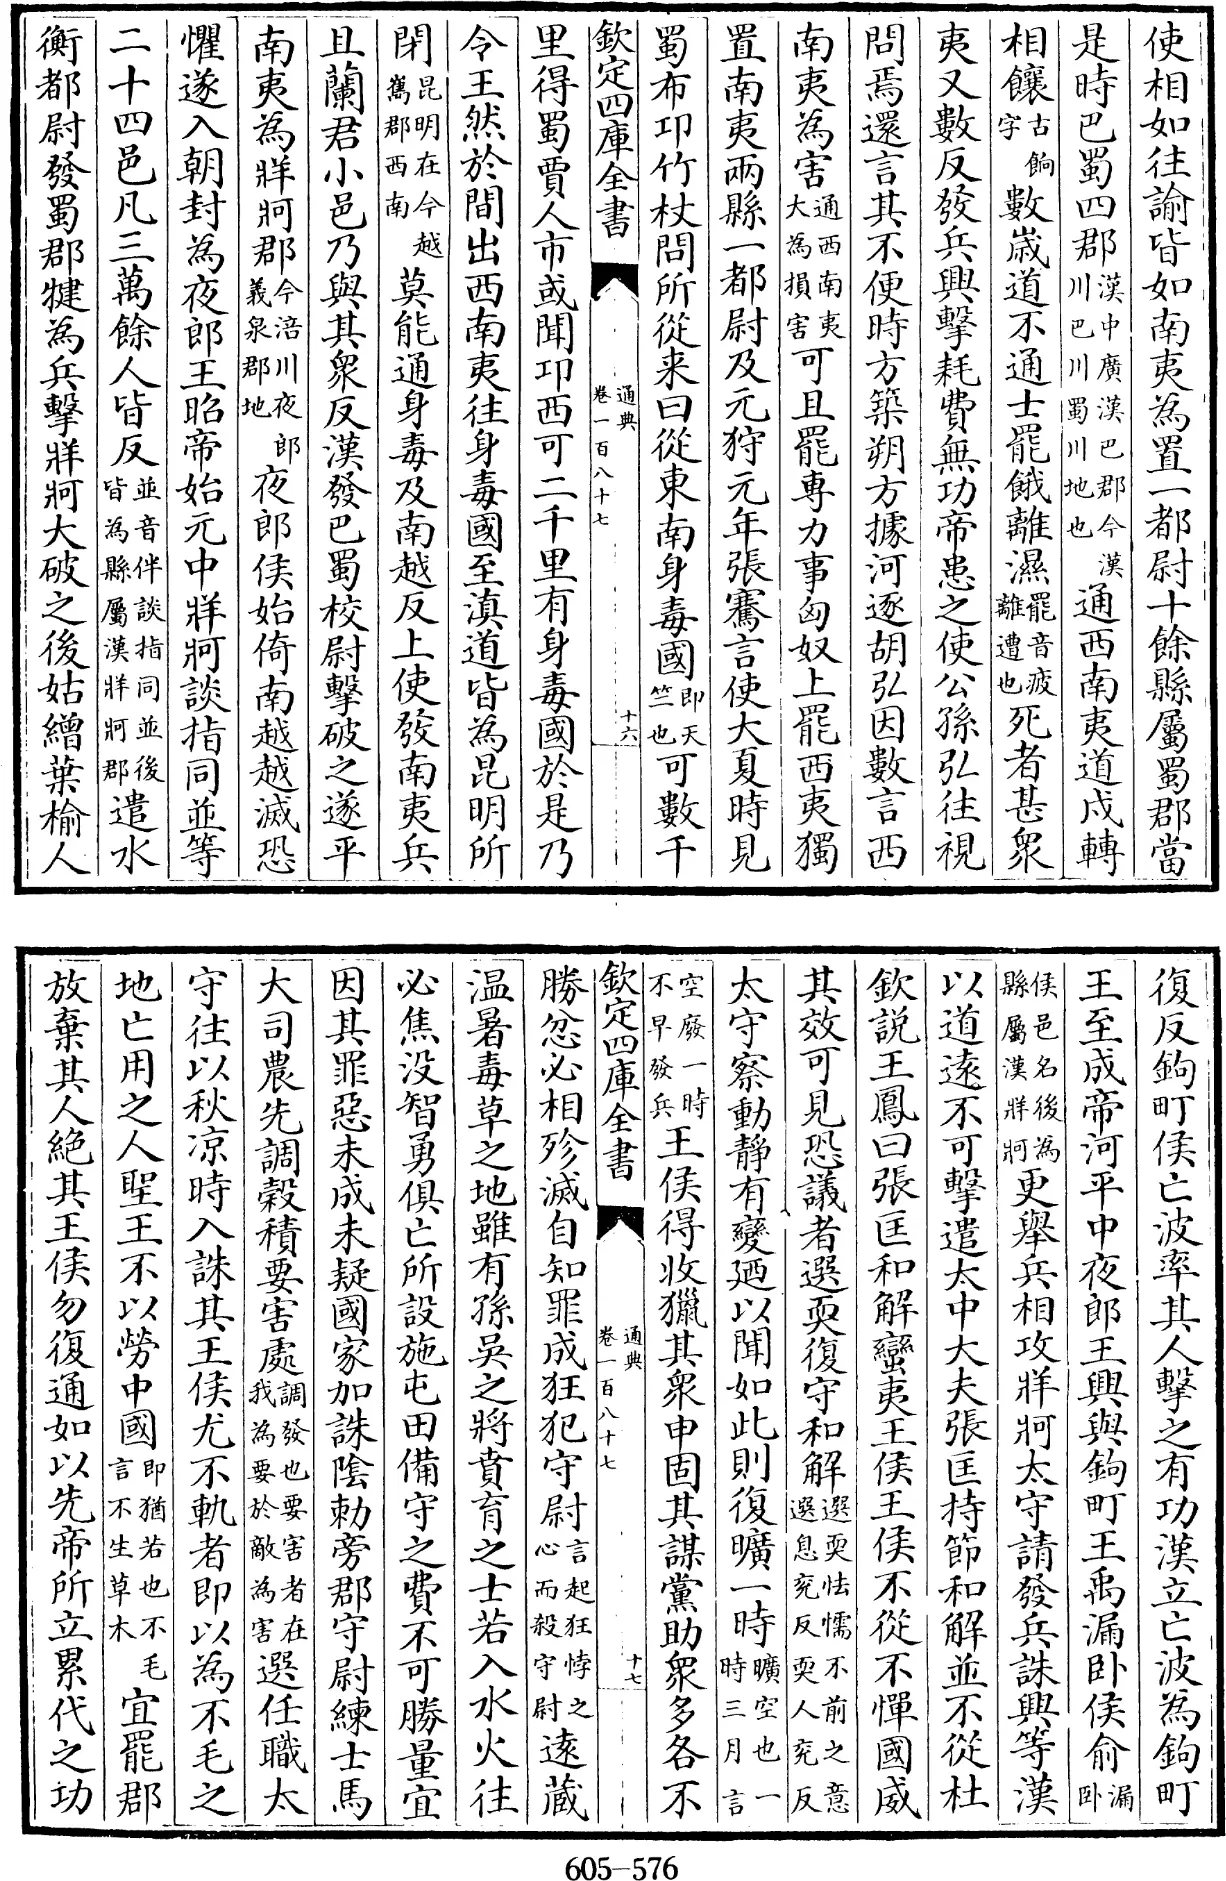 使相如往諭皆如南夷為置一都尉十餘縣屬蜀郡當
是時巴蜀四郡漢中廣漢巴郡今漢川巴川蜀川地也通西南夷道戍轉
相饟古餉字數嵗道不通士罷餓離濕罷音疲離遭也死者甚衆
夷又數反發兵興擊耗費無功帝患之使公孫弘往視
問焉還言其不便時方築朔方據河逐胡弘因數言西
南夷為害通西南夷大為損害可且罷專力事匈奴上罷西夷獨
置南夷兩縣一都尉及元狩元年張騫言使大夏時見
蜀布邛竹杖問所從来曰從東南身毒國即天竺也可數千
欽定四庫全書
通典
卷一百八十七
十六
里得蜀賈人市或聞邛西可二千里有身毒國於是乃
令王然於間出西南夷往身毒國至滇道皆為昆明所
閉昆明在今越嶲郡西南莫能通身毒及南越反上使發南夷兵
且蘭君小邑乃與其衆反漢發巴蜀校尉擊破之遂平
南夷為牂牁郡今涪川夜郎義泉郡地夜郎侯始倚南越越滅恐
懼遂入朝封為夜郎王昭帝始元中牂牁談指同並等
二十四邑凡三萬餘人皆反並音伴談指同並後皆為縣屬漢牂牁郡遣水
衡都尉發蜀郡犍為兵擊牂牁大破之後姑繒葉榆人
復反鉤町侯亡波率其人擊之有功漢立亡波為鉤町
王至成帝河平中夜郎王興與鉤町王禹漏卧侯俞漏卧
侯邑名後為縣屬漢牂牁更舉兵相攻牂牁太守請發兵誅興等漢
以道逺不可擊遣太中大夫張匡持節和解並不從杜
欽說王鳳曰張匡和解蠻夷王侯王侯不從不憚國威
其效可見恐議者選耎復守和解選耎怯懦不前之意選息兖反耎人兖反
太守察動靜有變廼以聞如此則復曠一時曠空也一時三月言
空廢一時不早發兵王侯得收獵其衆申固其謀黨助衆多各不
欽定四庫全書
通典
卷一百八十七
十七
勝忿必相殄滅自知罪成狂犯守尉言起狂悖之心而殺守尉逺藏
温暑毒草之地雖有孫吳之將賁育之士若入水火往
必焦没智勇俱亡所設施屯田備守之費不可勝量宜
因其罪惡未成未疑國家加誅陰勅旁郡守尉練士馬
大司農先調榖積要害處調發也要害者在我為要於敵為害選任職太
守往以秋凉時入誅其王侯尤不軌者即以為不毛之
地亡用之人聖王不以勞中國即猶若也不毛言不生草木宜罷郡
放棄其人絶其王侯勿復通如以先帝所立累代之功
605-576